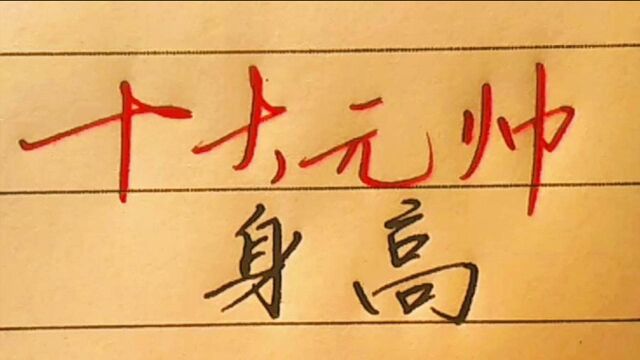 十大元帅
身高